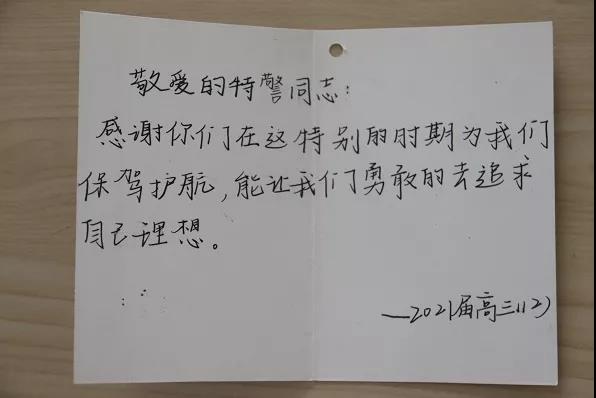 敬爱的特警同志：
感谢你们在这特别的时期为我们
保驾护航，能让我们勇敢的去追求
自己理想。
——2021届高三(12)